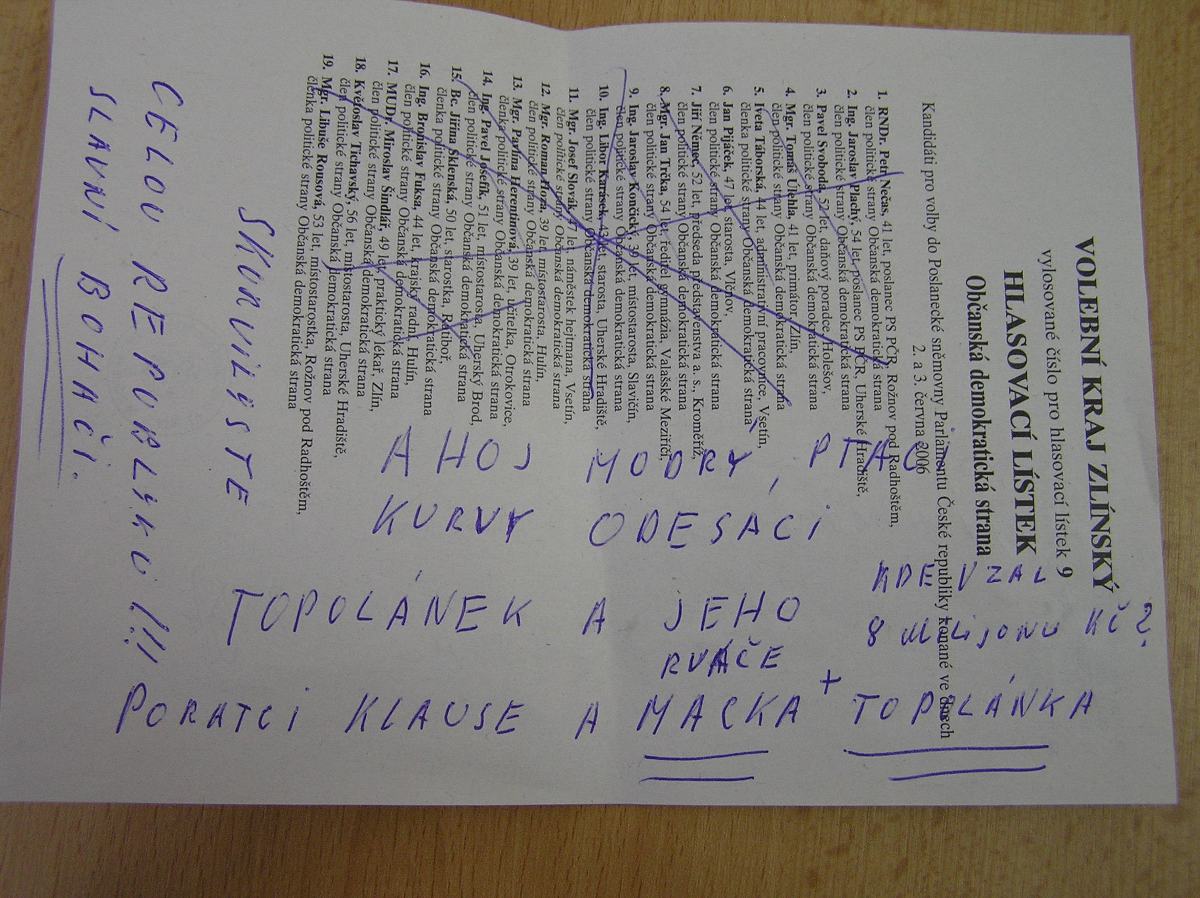 VOLEBNÍ KRAJ ZLÍNSKÝ
vylosované číslo pro hlasovací lístek 9
HLASOVACÍ LÍSTEK
Občanská demokratická strana
Kandidáti pro volby do Poslanecké sněmovny Parlamentu České republiky konané ve dnech
2. a 3. června 2006
1. RNDr. Petr Nečas, 41 let, poslanec PS PČR, Rožnov pod Radhoštěm,
člen politické strany Občanská demokratická strana
2. Ing. Jaroslav Plachý, 54 let, poslanec PS PČR, Uherské Hradiště,
člen politické strany Občanská demokratická strana
3. Pavel Svoboda, 52 let, daňový poradce, Holešov,
člen politické strany Občanská demokratická strana
4. Mgr. Tomáš Úlehla, 41 let, primátor, Zlín,
člen politické strany Občanská demokratická strana
5. Iveta Táborská, 44 let, administrativní pracovnice, Vsetín,
členka politické strany Občanská demokratická strana
6. Jan Pijáček, 47 let, starosta, Vlčnov,
člen politické strany Občanská demokratická strana
7. Jiří Němec, 52 let, předseda představenstva a. s., Kroměříž,
člen politické strany Občanská demokratická strana
8. Mgr. Jan Trčka, 54 let, ředitel gymnázia, Valašské Meziříčí,
člen politické strany Občanská demokratická strana
9. Ing. Jaroslav Končický, 39 let, místostarosta, Slavičín,
člen politické strany Občanská demokratická strana
10. Ing. Libor Karásek, let, starosta, Uherské Hradiště,
člen politické strany Občanská demokratická strana
11. Mgr. Josef Slovák, 47 let, náměstek hejtmana, Vsetín,
člen politické strany Občanská demokratická strana
12. Mgr. Roman Hoza, 39 let, místostarosta, Hulín,
člen politické strany Občanská demokratická strana
13. Mgr. Pavlína Horentinová, 39 let, učitelka, Otrokovice,
členka politické strany Občanská demokratická strana
14. Ing. Pavel Josefík, 51 let, místostarosta, Uherský Brod,
člen politické strany Občanská demokratická strana
15. Bc. Jiřina Sklenská, 50 let, starostka, Ratiboř,
členka politické strany Občanská demokratická strana
16. Ing. Bronislav Fuksa, 44 let, krajský radní, Hulín,
člen politické strany Občanská demokratická strana
17. MUDr. Miroslav Šindlář, 49 let, praktický lékař, Zlín,
člen politické strany Občanská demokratická strana
18. Květoslav Tichavský, 56 let, místostarosta, Uherské Hradiště,
člen politické strany Občanská demokratická strana
19. Mgr. Libuše Rousová, 53 let, místostarostka, Rožnov pod Radhoštěm,
členka politické strany Občanská demokratická strana
AHOJ MODRÝ PTÁC
KURVY ODESÁCI
KDE VZAL
8 MILIJONU KČ?
TOPOLÁNEK A JEHO
RVÁČE
PORATCI KLAUSE A MACKA + TOPOLÁNKA
SKURVILYSTE
CELOU REPUBLYKU!!!
SLAVNÍ BOHAČI.